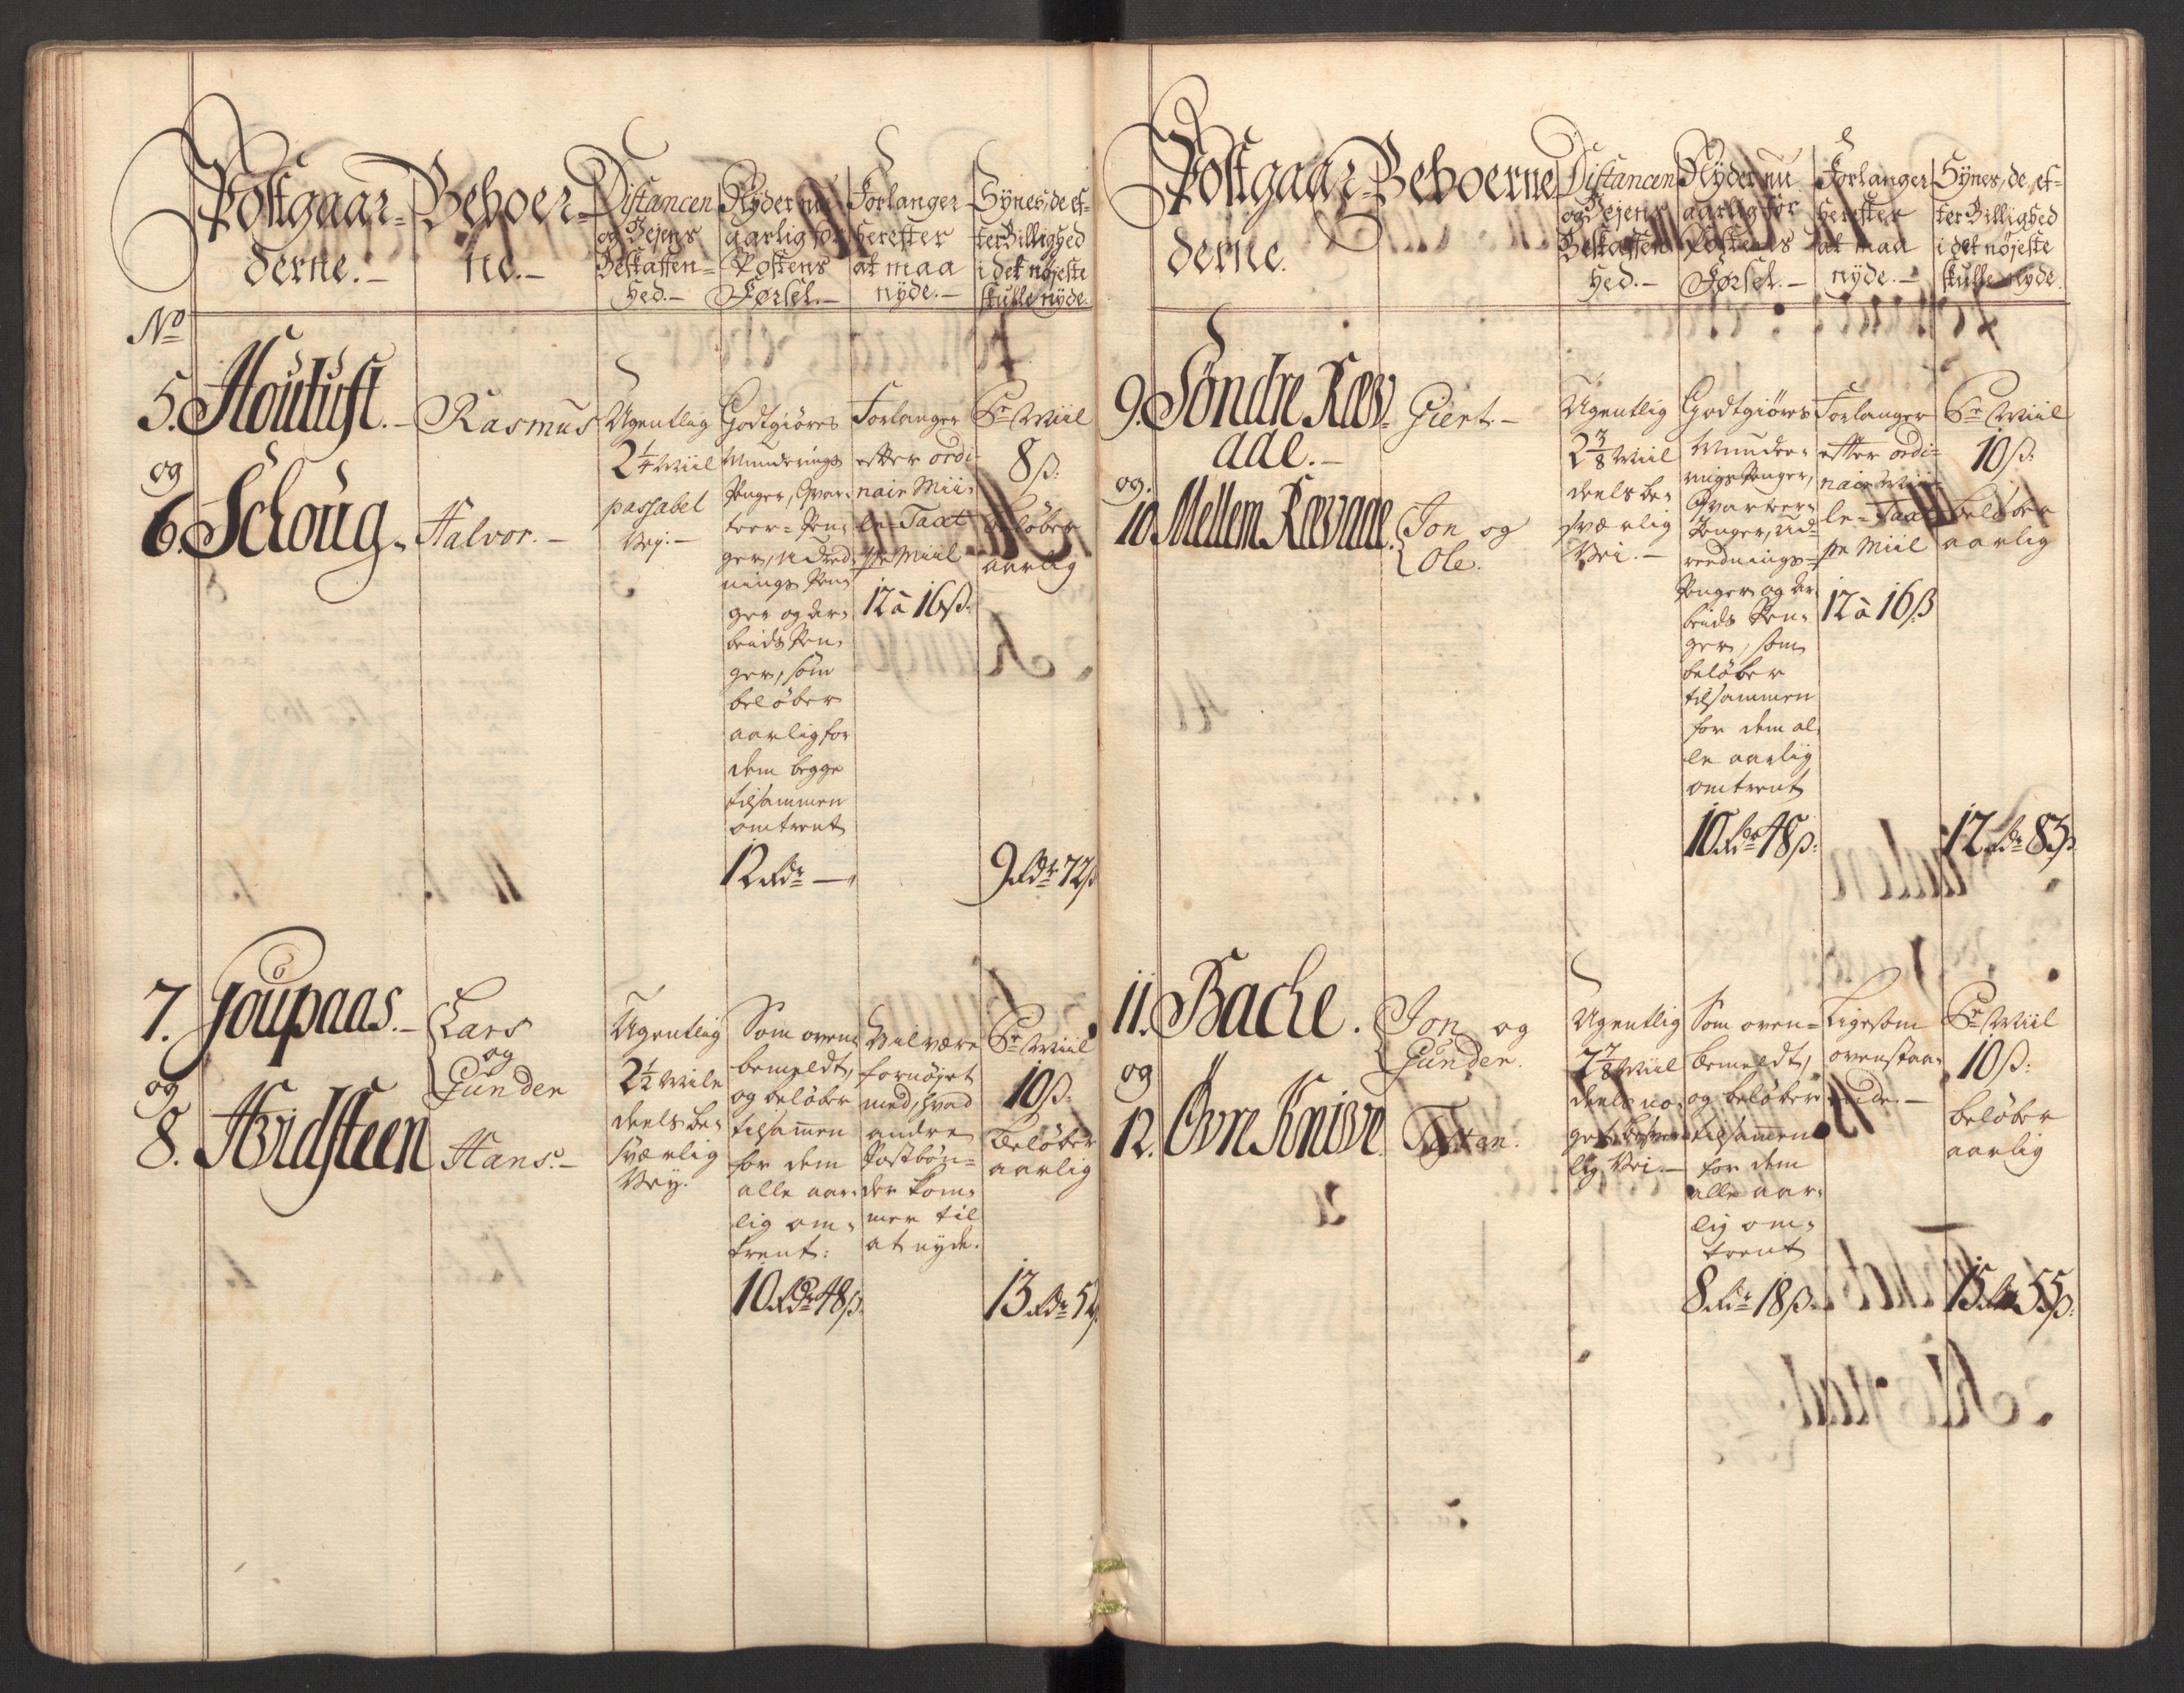 Postgaar-
derne.-
Beboer-
ne.-
Distancen
og Vejens
Beskaffen-
hed.-
Nyder nu
aarlig for
Postens
Førsel.-
Forlanger
herefter
at maa
nyde.-
Synes, de ef-
ter Billighed
i det nøjeste
skulle nyde.
No
5. Houtuft.-
og
6. Schoug.
Rasmus
Halvor.-
Ugentlig
2 1/4 Miil
passabel
Vej.-
Godtgiøres
Munderings
Penger, Qvar-
teer-Pen-
ger, Udred-
nings Pen-
ger og Ar-
beids Pen-
ger, som
beløber
aarlig for
dem begge
tilsammen
omtrent
12 Rdr -
Forlanger
efter ordi-
nair Mii-
le-Taxt
pr Miil
12 à 16 ß.
Pr Miil
8 ß.
beløber
aarlig
9 Rdr 72 ß
7. Joupaas.-
og
8. Hvidsteen
Lars
og
Gunder
Hans.-
Ugentlig
2 1/2 Miile
deels be-
sværlig
Vey.
Som oven-
bemeldt,
og beløber
tilsamen
for dem
alle aar-
lig om-
trent:
10 Rdr 48 ß.
Vil være
fornøjet
med, hvad
andre
Postbøn-
der kom-
mer til
at nyde.
Pr Miil
10 ß.
beløber
aarlig
13 Rdr 52
Postgaar-
derne.
Beboerne
Distancen
og Vejens
Beskaffen
hed.-
Nyder nu
aarlig for
Postens
Førsel.-
Forlanger
herefter
at maa
nyde.-
Synes, de, ef-
ter Billighed
i det nøjeste
skulle nyde.
9. Søndre Ræv-
aae.-
og.
10. Mellem Rævaae.
Giert.-
Jon og
Ole.
Ugentlig
2 3/8 Miil
deels be-
sværlig
Vei.-
Godtgiøres
Munder-
nigs Penger,
Qvarteer-
Penger, Ud-
rednings-
Penger og Ar-
beids Pen-
ger, som
beløber
tilsammen
for dem al-
le aarlig
omtrent
10 Rdr 48 ß.
Forlanger
efter ordi-
nair Mii-
le-Taxt
pr Miil
12 à 16 ß
Pr Miil
10 ß.
beløber
aarlig
12 Rdr 83 ß
11. Bache.
og
12. Øvre Knive.
Jon og
Gunder.
Tosten.
Ugentlig
2 7/8 Miil
deels no-
get besvær-
lig Vei.-
Som oven-
bemeldt,
og beløber
tilsamen
for dem
alle aar-
lig om-
trent
8 Rdr 18 ß.
Ligesom
ovenstaa-
ende.-
Pr Miil
10 ß.
beløber
aarlig
15 Rdr 55 ß.